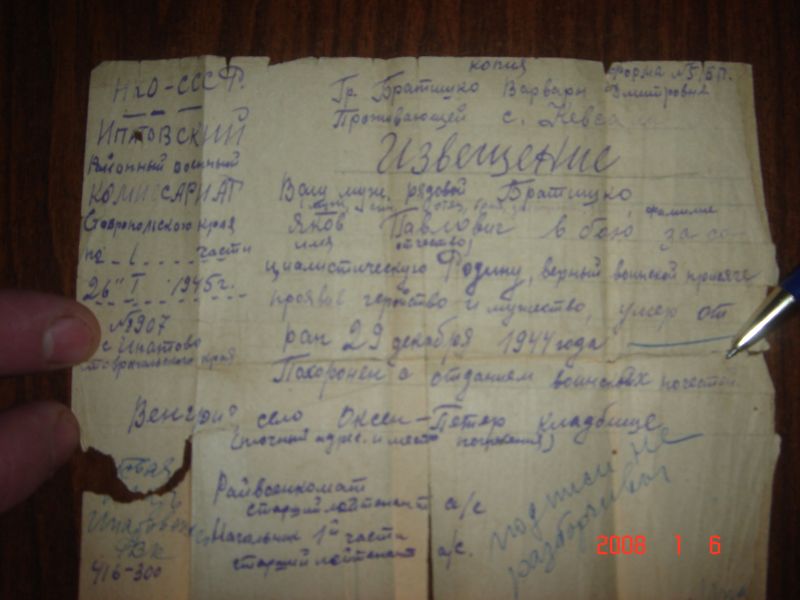 копия
Форма №5/БП.
НКО-СССР.
Гр. Братишко Варвары Дмитровна
Проживающей с. Кевсала
ИПАТОВСКИЙ
Районный военный
КОМИССАРИАТ
Ставропольского края
по 1 части
26" I 1945г.
№ 907
с Ипатово
Ставропольского края
Извещение
Ваш муж, рядовой Братишко
фамилие
Яков Павлович в бою за со-
имя отчество
циалистическую Родину, верный воинской присяге
проявив геройство и мужество, умер от
ран 29 декабря 1944 года
Похоронен с отданием воинских почестей.
Венгрия село Оксен-Петер кладбище
(точный адрес и место погребения)
Райвоенкомат
старший лейтенант а/с
Начальник 1й части
старший лейтенант а/с.
подписи не
разборчивы
Ипатовский
РВК
416-300
2008 1 6